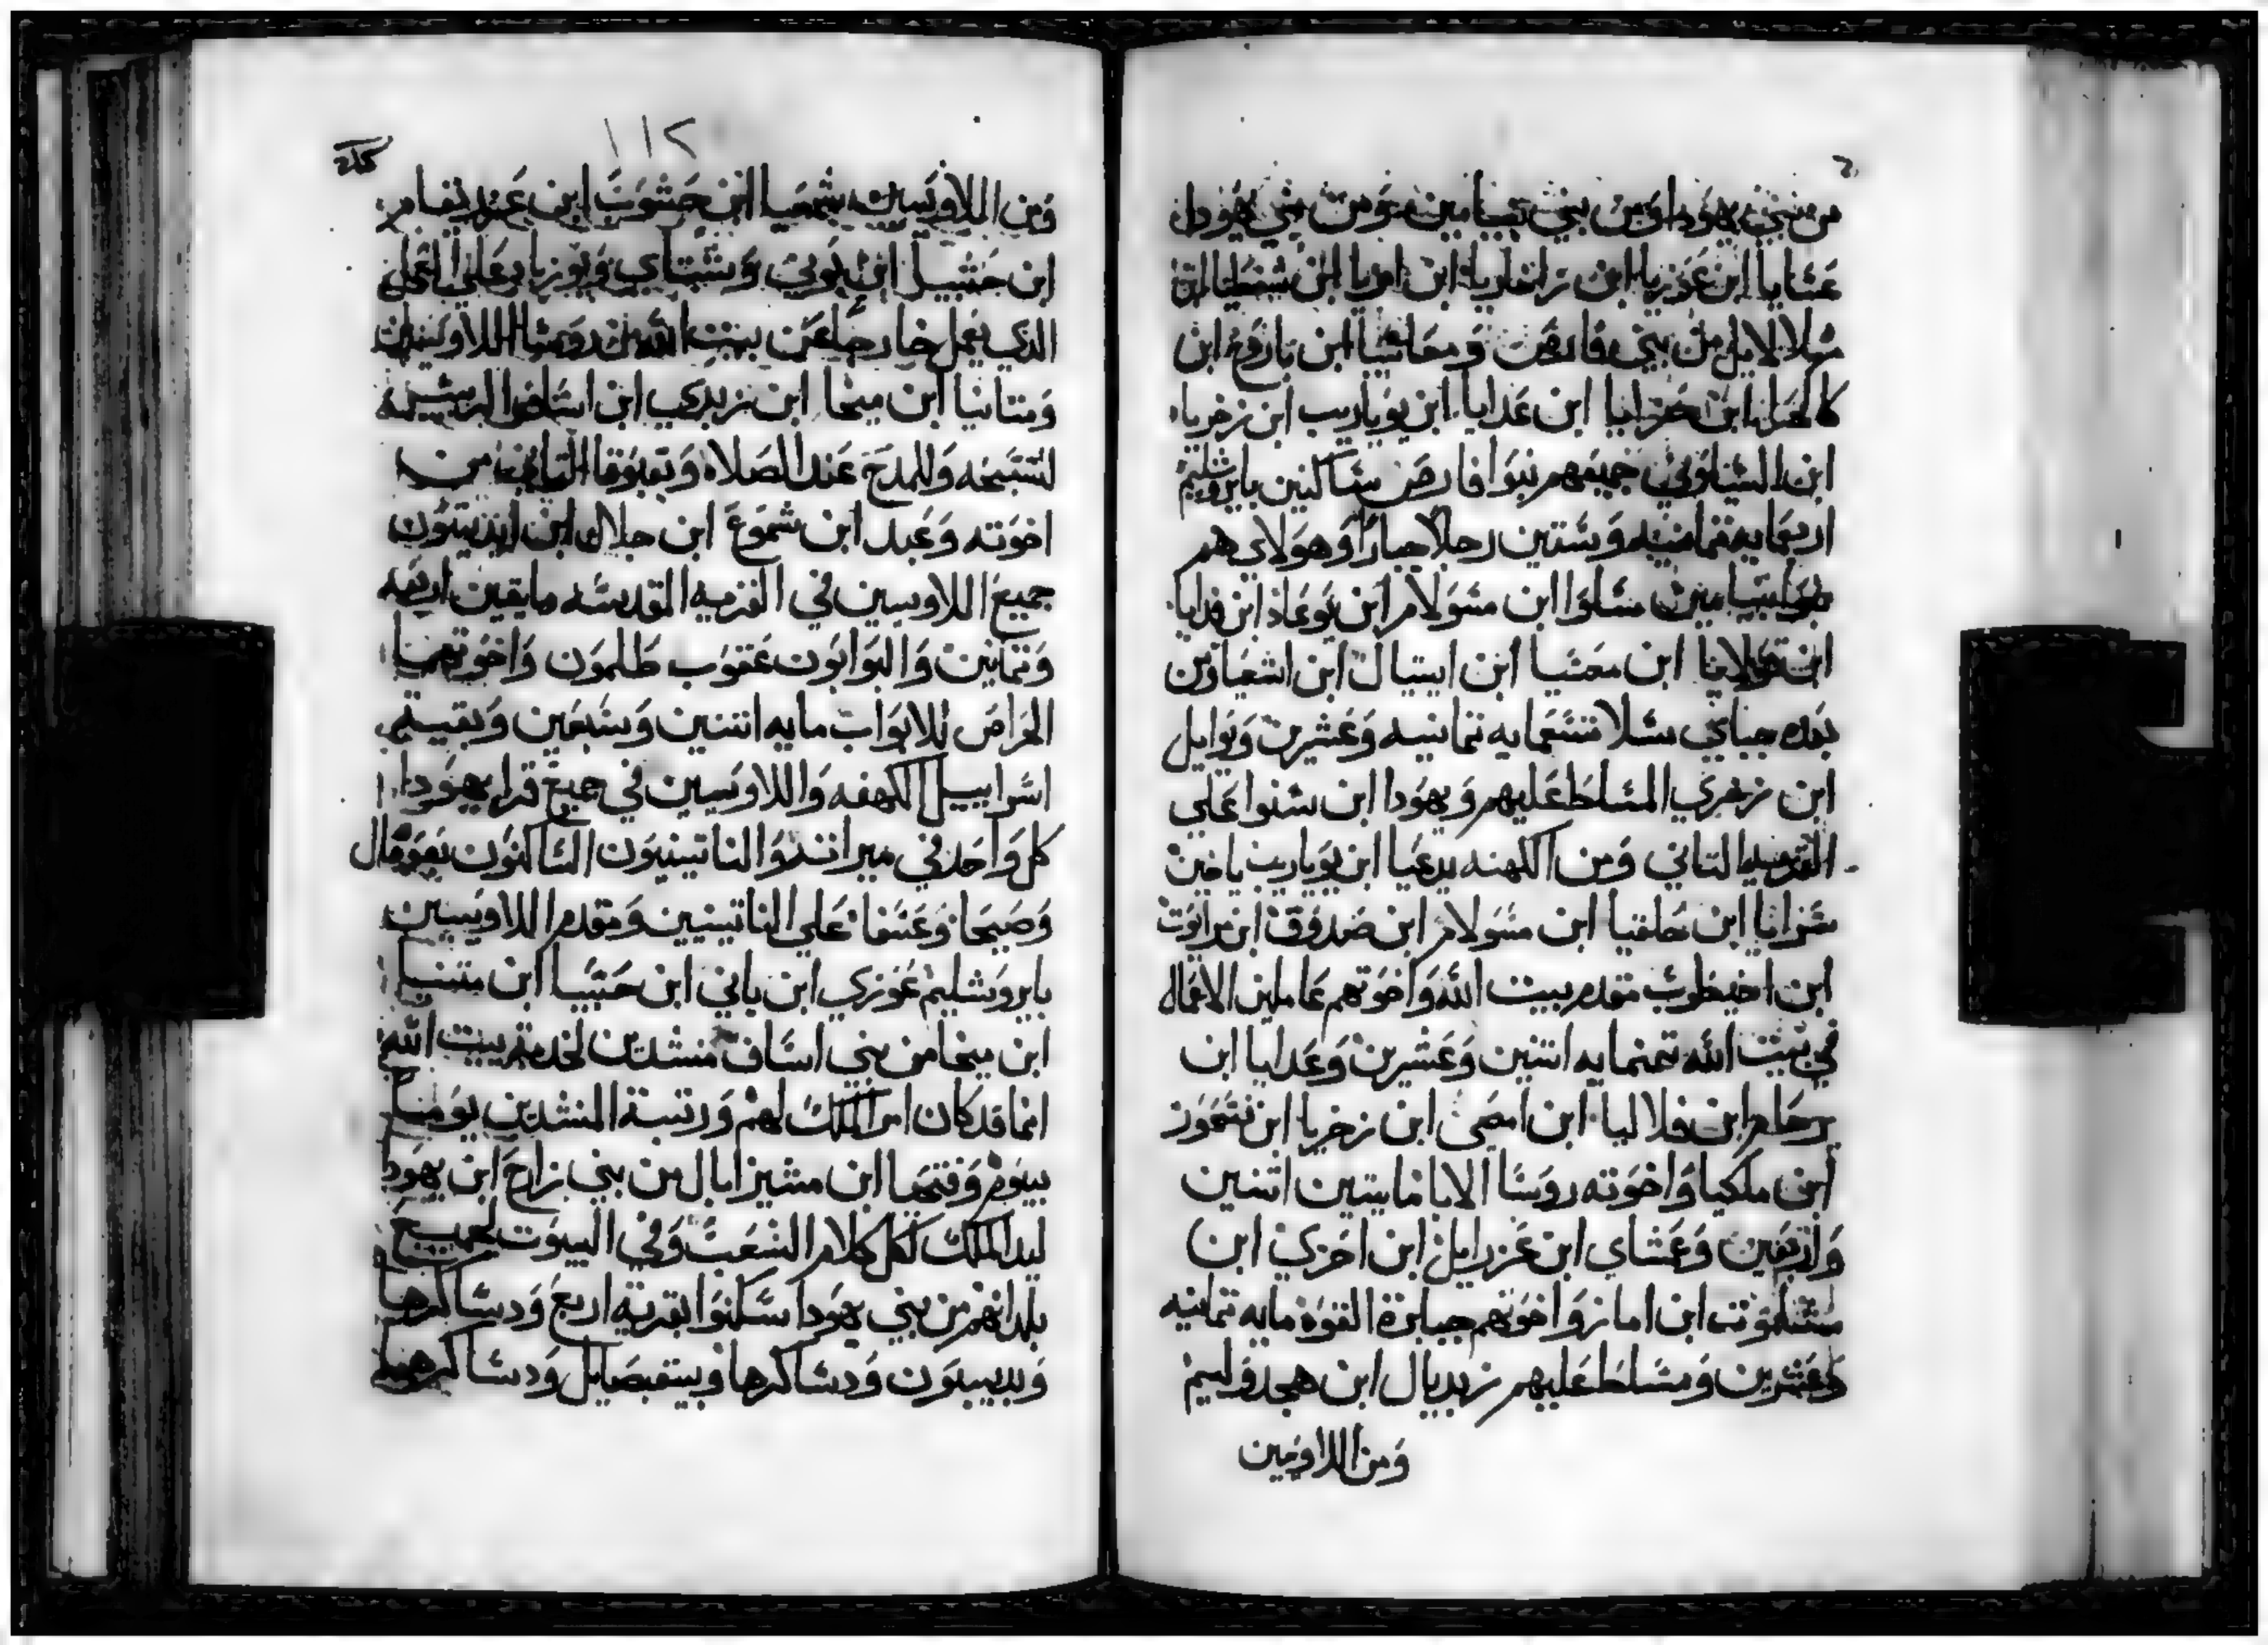 من بني يهودا ومن بني بنيامين ومن بني يهودا
عثايا ابن عوزيا ابن زاخاريا ابن امريا ابن شفطيا ابن
مهلالاايل من بني فارص ومعاسيا ابن باروخ ابن
كالحزا ابن حزايا ابن عدايا ابن يوياريب ابن زخريا
ابن الشيلوني جميعهم بنوا فارص ساكنين بايروشليم
اربعمايه ثمانيه وستين رجلا جبارا وهولاي هم
بنو بنيامين سلوا ابن مشولام ابن يوعاد ابن فدايا
ابن قولايا ابن معسيا ابن ايتيال ابن اشعيا ومن
بعده جباي سلا تسعمايه ثمانيه وعشرين ويوايل
ابن زخري المسلط عليهم ويهودا ابن سنوا علي
القريه التاني ومن الكهنه يدعيا ابن يوياريب ياخين
سرايا ابن حلقيا ابن مشولام ابن صدوق ابن مرايوت
ابن اخيطوب مقدم بيت الله واخوتهم عاملين الاعمال
في بيت الله تمنمايه اتنين وعشرين وعدايا ابن
يرحام ابن فلاليا ابن امصي ابن زخريا ابن فشحور
ابن ملكيا واخوته روسا الابا مايتين اتنين
واربعين وعمشاي ابن عزرايل ابن احزي ابن
مشلموت ابن اماز واخوتهم جبابرة القوه مايه تمانيه
وعشرين ومسلط عليهم زبديال ابن هجدوليم
ومن اللاويين
١١٢
ومن اللاويين شمعيا ابن حشوب ابن عزريقام
ابن حشبيا ابن بوني وشبتاي ويوزباد علي العمل
الذي يعمل خارجا عن بيت الله من روسا اللاويين
ومتانيا ابن ميخا ابن زبدي ابن اساف الريس
للتسبحه وللمدح عند الصلاه وبقبوقا التاني من
اخوته وعبدا ابن شموع ابن جلال ابن ايديتون
جميع اللاويين في القريه المقدسه مايتين اربعه
وتمانين والبوابون عقوب طلمون واخوتهما
الحراص للابواب مايه اتنين وسبعين وبقية
اسراييل الكهنه واللاويين في جميع قرا يهودا
كل واحد في ميراته والناتينيون الساكنون بعوفال
وصيحا وغشفا علي الناتينيين ومقدم اللاويين
بايروشليم عوزي ابن باني ابن حشبيا ابن متنيا
ابن ميخا من بني اساف منشدين لخدمة بيت الله
انما قد كان امر الملك لهم ورتبة المنشدين يوما
بيوم وفتحيا ابن مشيزابال من بني زارح ابن يهودا
ليد الملك لكل كلام الشعب وفي البيوت لجميع
بلدانهم من بني يهودا سكنوا بقرية اربع ودساكرها
وبديبون ودساكرها وبيقبصايل ودساكرها